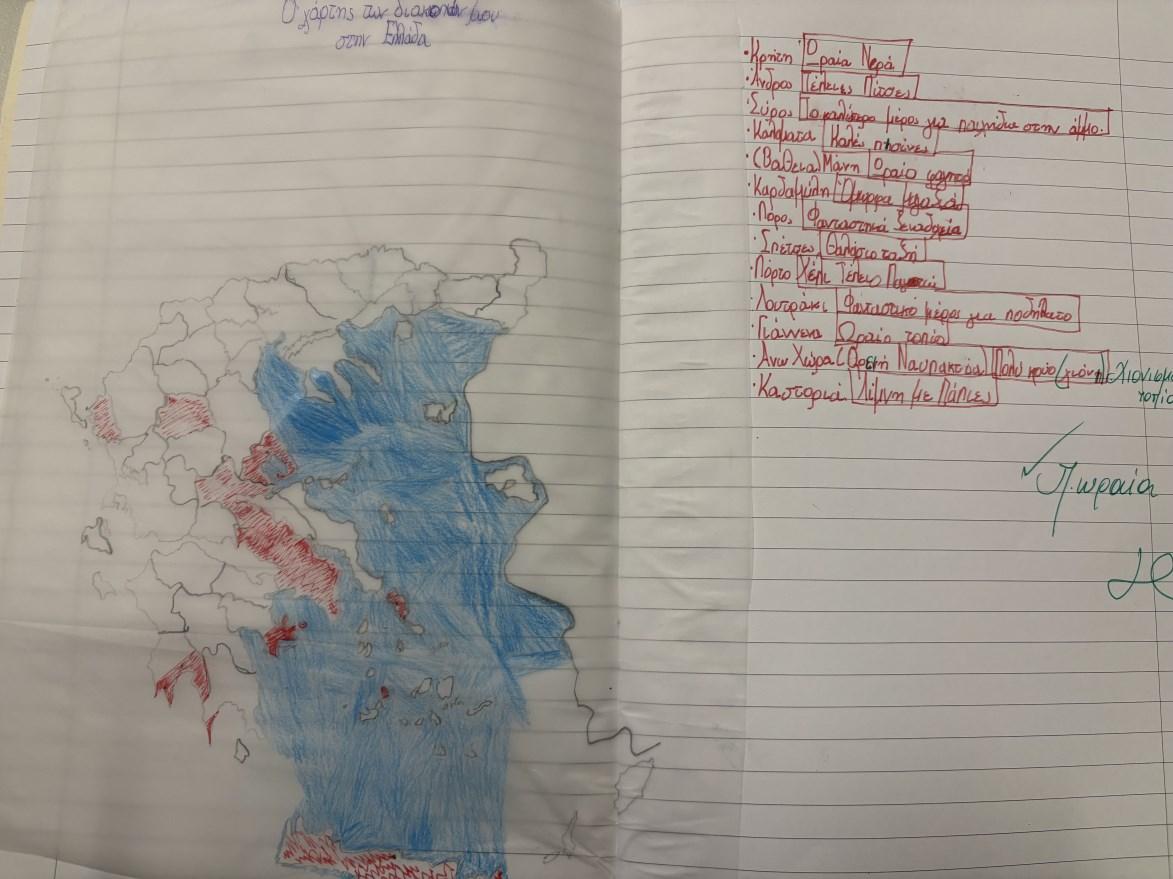 Ο χάρτης των διακοπών μου
στην Ελλάδα
·Κρήτη Οραία Νερά
·Άνδρος Τέλειες Πίτσες
·Σύρος Το καλύτερο μέρος για παιχνίδια στην άμμο.
·Καλαματα Καλές πισίνες
·(Βάθεια) Μάνη Οραίο φαγητό
·Καρδαμύλη Όμορφα μαγαζιά
·Πόρος Φανταστικά ξενοδοχεία
·Σπέτσες Θαλάσσιο ταξί
·Πόρτο Χέλι Τέλειο
·Λουτράκι Φανταστικό μέρος για ποδήλατο
·Γιάννενα Ωραίο τοπίο
·Άνω Χώρα (Ορεινή Ναυπακτία) Πολύ κρύο (χιόνι) Χιονισμ
τοπίο
·Καστοριά Λίμνη με Πάπιες
Π. ωραία